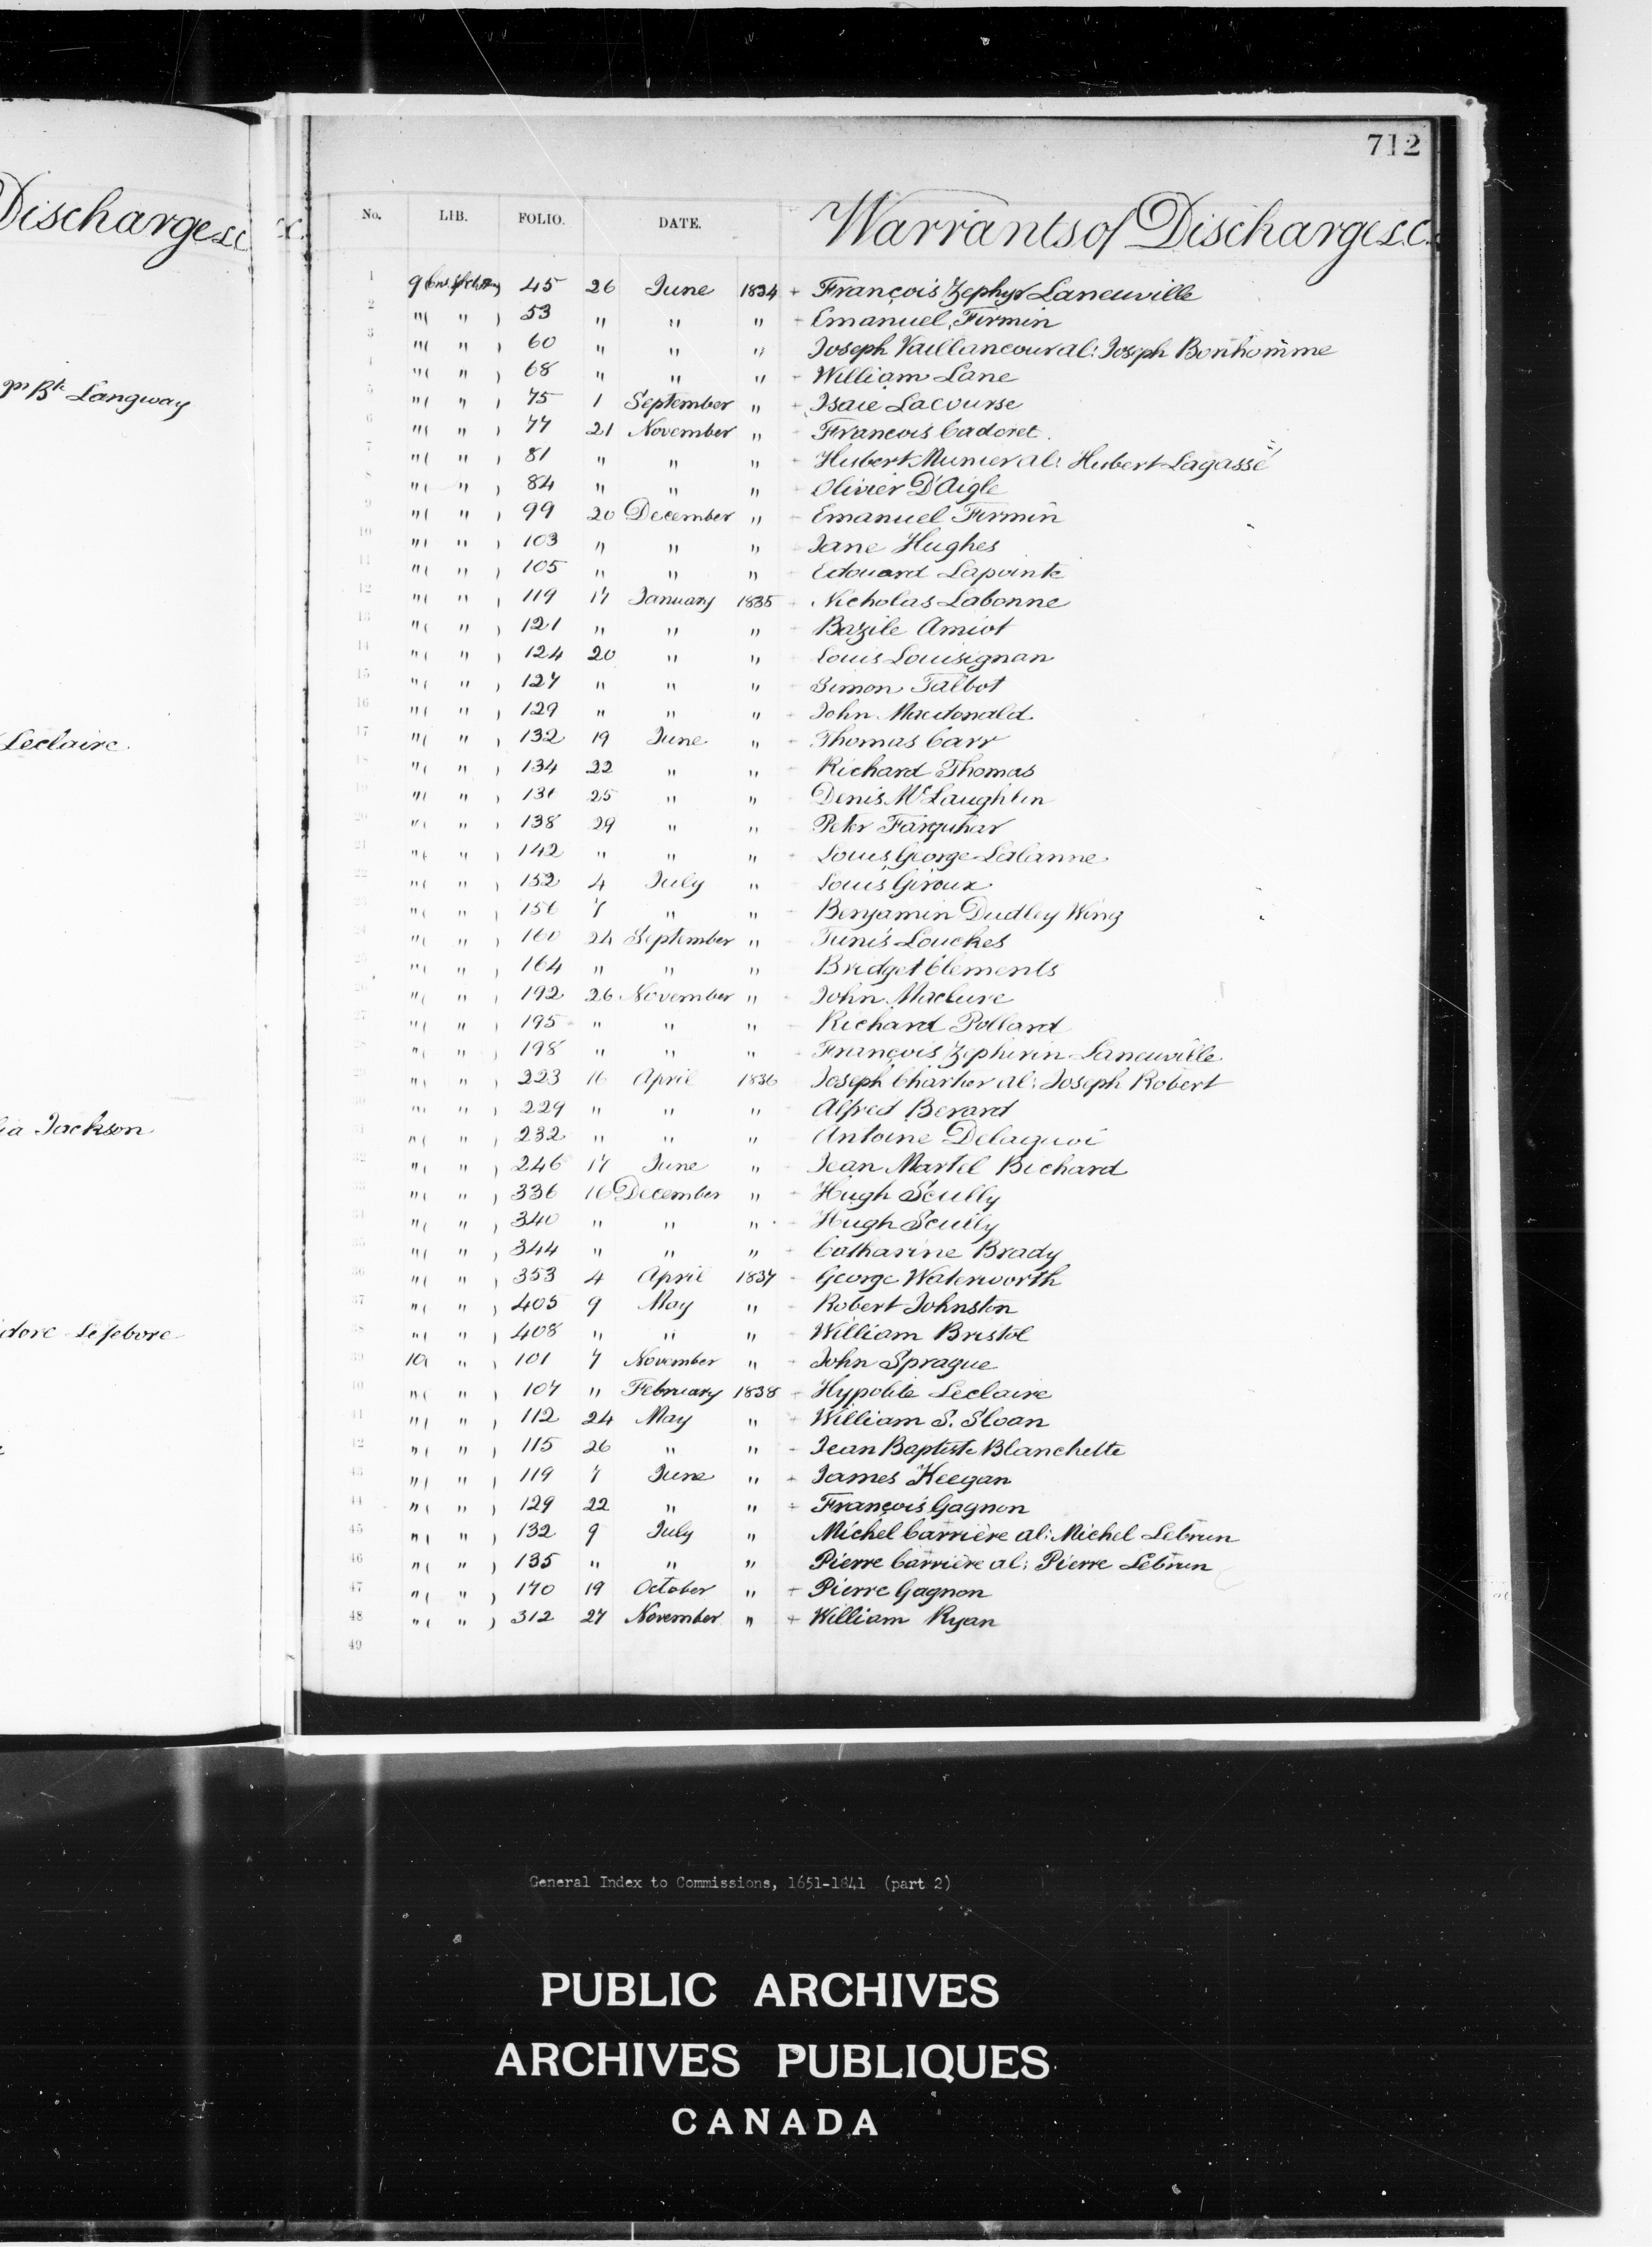 Discharges &c
Jn Bte Langway
Leclaire
ia Jackson
dore Lefebvre
712
No. LIB. FOLIO. DATE. Warrants of Discharge &c.
1 9 45 26 June 1834 + François Zephyr Laneuville
2 "( " ) 53 " " " + Emanuel Firmin
3 "( " ) 60 " " " Joseph Vaillancour al: Joseph Bonhomme
4 "( " ) 68 " " " - William Lane
5 "( " ) 75 1 September " + Isaie Lacourse
6 "( " ) 77 21 November " - Francois Cadoret
7 "( " ) 81 " " " - Hubert Munier al: Hubert Lagassé
8 "( " ) 84 " " " - Olivier D'Aigle
9 "( " ) 99 20 December " - Emanuel Firmin
10 "( " ) 103 " " " - Jane Hughes
11 "( " ) 105 " " " - Edouard Lapointe
12 "( " ) 119 17 January 1835 - Nicholas Labonne
13 "( " ) 121 " " " - Bazile Amiot
14 "( " ) 124 20 " " - Louis Louisignan
15 "( " ) 127 " " " - Simon Talbot
16 "( " ) 129 " " " - John Macdonald
17 "( " ) 132 19 June " - Thomas Carr
18 "( " ) 134 22 " " - Richard Thomas
19 "( " ) 136 25 " " - Denis McLaughlin
20 "( " ) 138 29 " " - Peter Farquhar
21 "( " ) 142 " " " - Louis George Lalanne
22 "( " ) 152 4 July " - Louis Giroux
23 "( " ) 156 7 " " - Benjamin Dudley Wing
24 "( " ) 160 24 September " - Tunis Louckes
25 "( " ) 164 " " " - Bridget Clements
26 "( " ) 192 26 November " - John Maclure
27 "( " ) 195 " " " - Richard Pollard
28 "( " ) 198 " " " - François Zephirin Laneuville
29 "( " ) 223 16 April 1836 - Joseph Chartier al: Joseph Robert
30 "( " ) 229 " " " - Alfred Berard
31 "( " ) 232 " " " - Antoine Delaquoi
32 "( " ) 246 17 June " - Jean Martel Bichard
33 "( " ) 336 16 December " - Hugh Scully
34 "( " ) 340 " " " - Hugh Scully
35 "( " ) 344 " " " - Catharine Brady
36 "( " ) 353 4 April 1837 - George Waterworth
37 "( " ) 405 9 May " - Robert Johnston
38 "( " ) 408 " " " - William Bristol
39 10( " ) 101 7 November " + John Sprague
40 "( " ) 107 " February 1838 + Hypolite Leclaire
41 "( " ) 112 24 May " + William S. Sloan
42 "( " ) 115 26 " " - Jean Baptiste Blanchette
43 "( " ) 119 7 June " + James Keegan
44 "( " ) 129 22 " " + François Gagnon
45 "( " ) 132 9 July " Michel Carrière al: Michel Lebrun
46 "( " ) 135 " " " Pierre Carrière al: Pierre Lebrun
47 "( " ) 170 19 October " + Pierre Gagnon
48 "( " ) 312 27 November " + William Ryan
49
General Index to Commissions, 1651-1841 (part 2)
PUBLIC ARCHIVES
ARCHIVES PUBLIQUES
CANADA